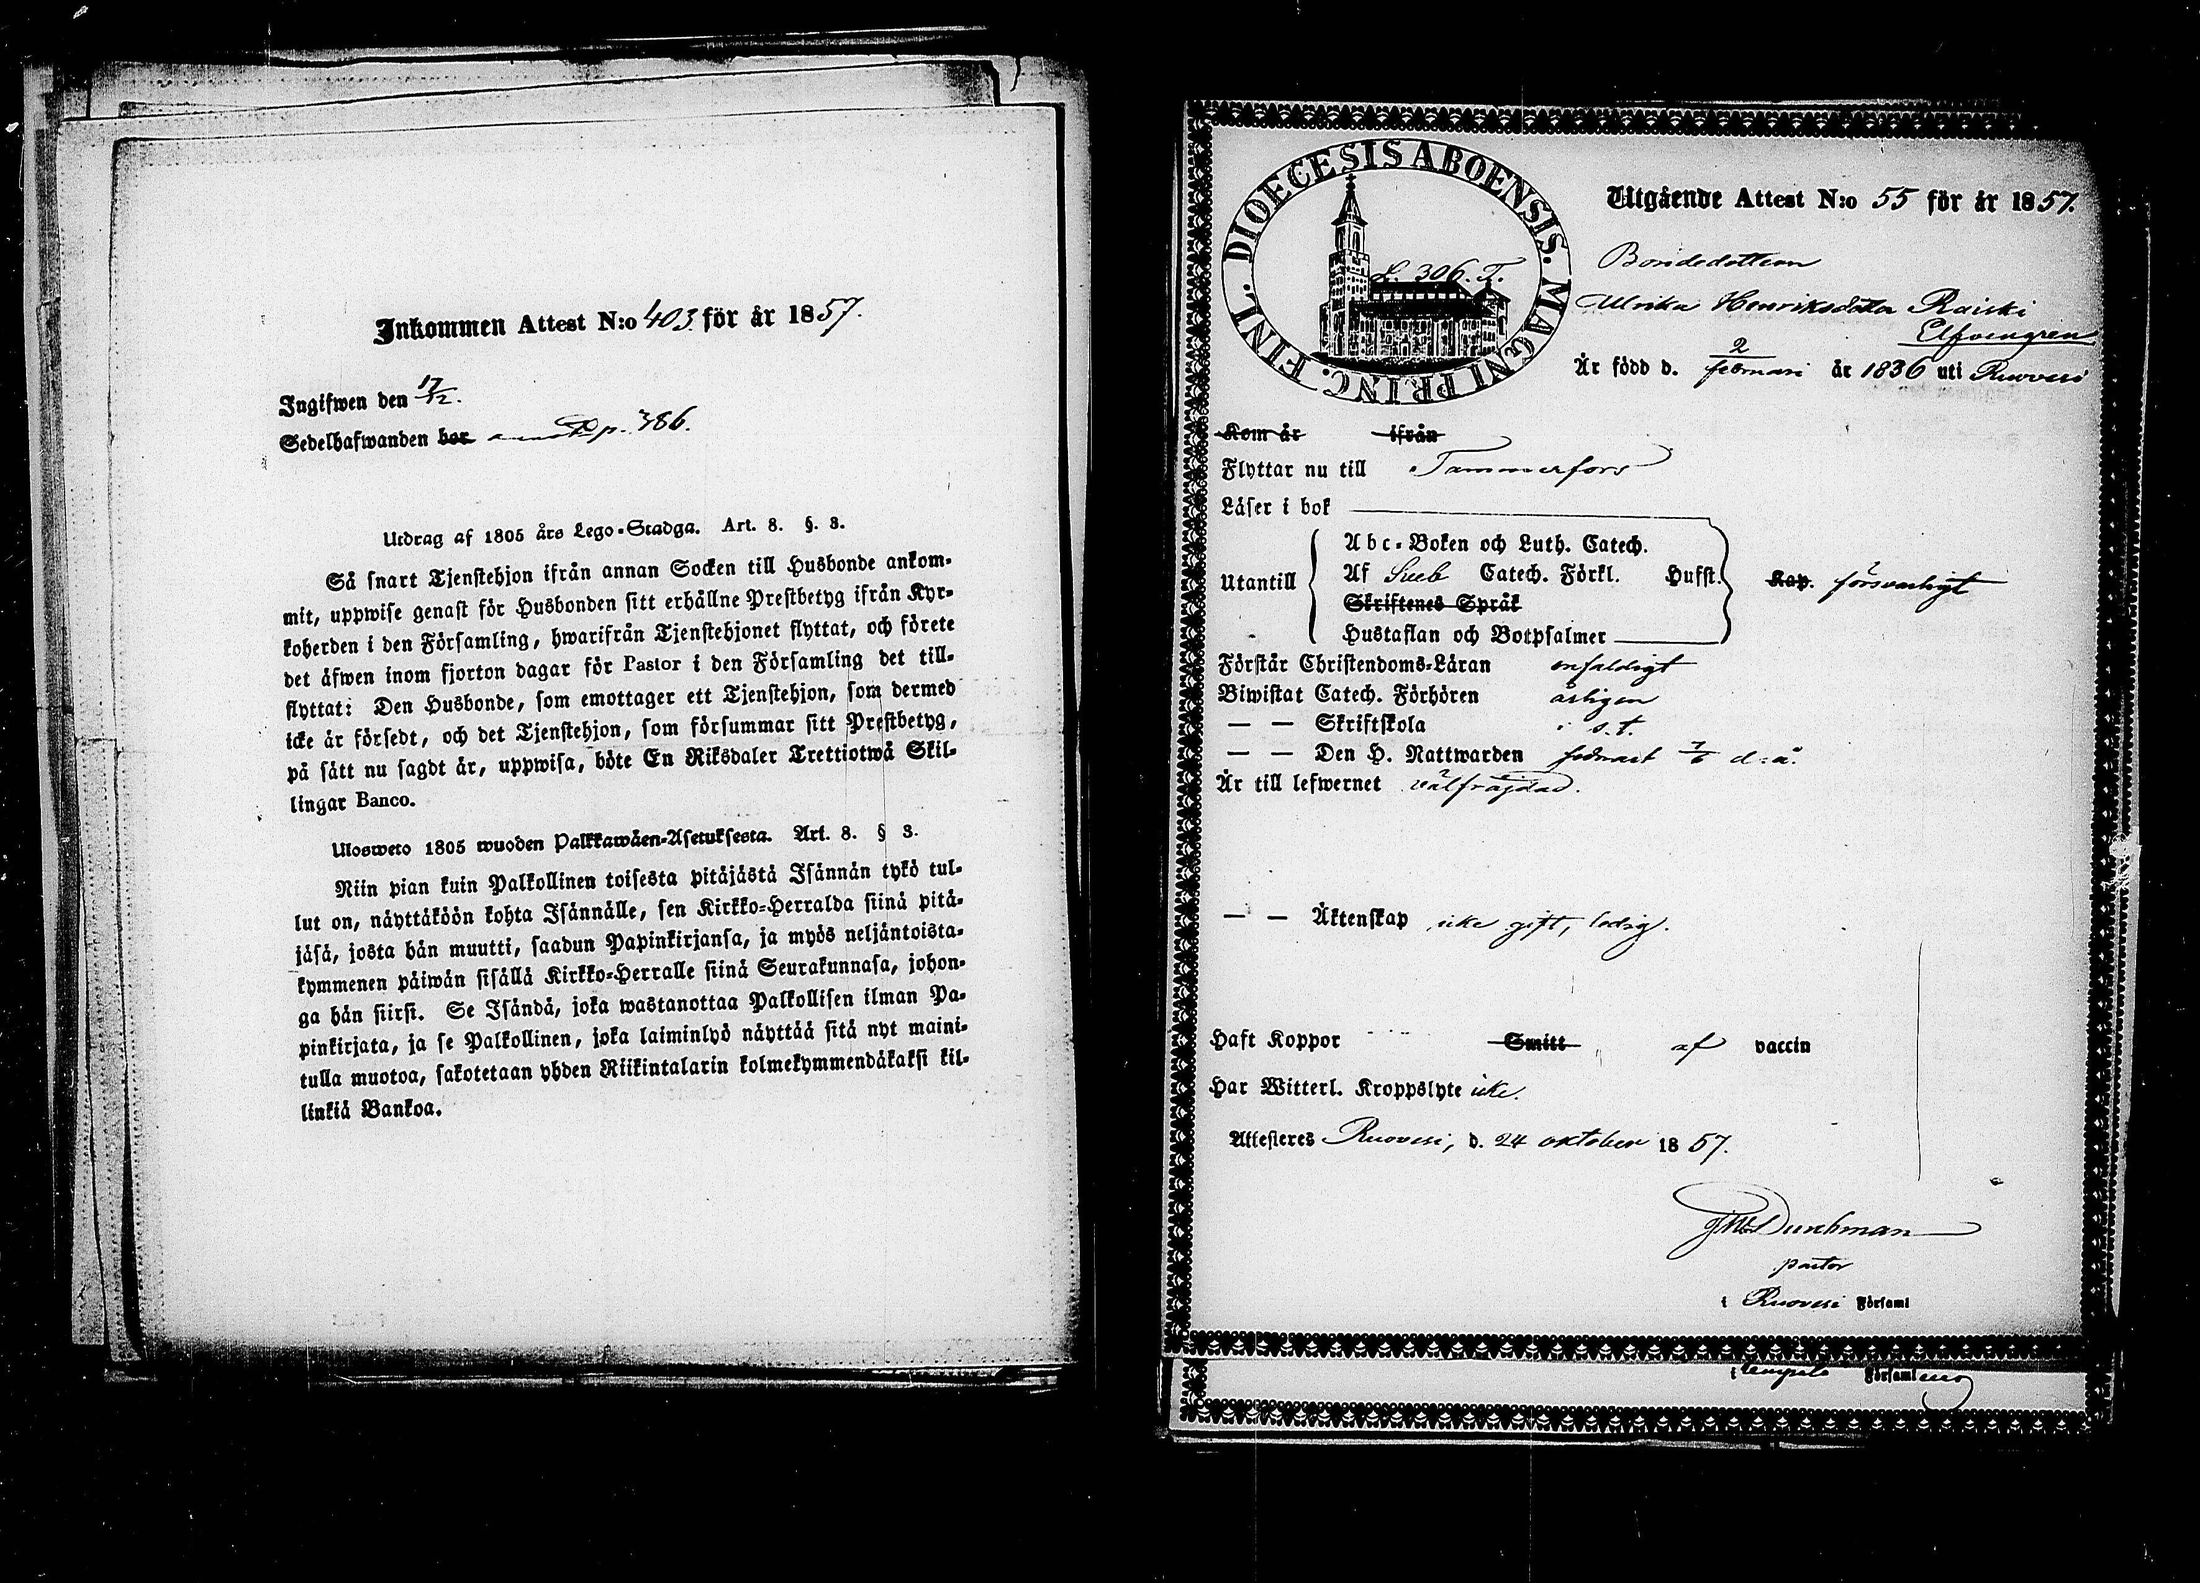 Inkommen Attest N:o 403 för år 1857.
Ingifwen den 17/12.
Sedelhafwanden har p. 386.
Utdrag af 1805 års Lego-Stadga. Art. 8. §. 3.
Så snart Tjenstehjon ifrån annan Socken till Husbonde ankom-
mit, uppwise genast för Husbonden sitt erhållne Prestbetyg ifrån Kyr-
koherden i den Församling, hwarifrån Tjenstehjonet flyttat, och förete
det äfwen inom fjorton dagar för Pastor i den Församling det till-
flyttat: Den Husbonde, som emottager ett Tjenstehjon, som dermed
icke är försedt, och det Tjenstehjon, som försummar sitt Prestbetyg,
på sätt nu sagdt är, uppwisa, böte En Riksdaler Trettiotwå Skil-
lingar Banco.
Ulosweto 1805 wuoden Palkkawäen-Asetuksesta. Art. 8. § 3.
Niin pian kuin Palkollinen toisesta pitäjästä Isännän tykö tul-
lut on, näyttäköön kohta Isännälle, sen Kirkko-Herralda siinä pitä-
jäsä, josta hän muutti, saadun Papinkirjansa, ja myös neljäntoista-
kymmenen päiwän sisällä Kirkko-Herralle siinä Seurakunnasa, johon-
ga hän siirsi. Se Isändä, joka wastanottaa Palkollisen ilman Pa-
pinkirjata, ja se Palkollinen, joka laiminlyö näyttää sitä nyt maini-
tulla muotoa, sakotetaan yhden Riikintalarin kolmekymmendäkaksi kil-
linkiä Bankoa.
DIOECESIS ABOENSIS. MAGNI PRINC. FINL.
L. 306. T.
Utgående Attest N:o 55 för år 1857.
Bondedottern
Ulrika Henriksdotter Raiski
Elfvengren
Är född d. 2 februari år 1836 uti Ruovesi
Kom år ifrån
Flyttar nu till Tammerfors
Läser i bok
Utantill
Abc-Boken och Luth. Catech.
Af Sveb Catech. Förkl. Hufst. Kap. försvarligt
Skriftenes Språk
Hustaflan och Botpsalmer
Förstår Christendoms-Läran enfaldigt
Biwistat Catech. Förhören årligen
— — Skriftskola i s. t.
— — Den H. Nattwarden sednast 7/6 d. å.
Är till lefwernet välfrägdad.
— — Äktenskap icke gift, ledig.
Haft Koppor Smitt af vaccin
Har Witterl. Kroppslyte icke.
Attesteres Ruovesi, d. 24 oktober 1857.
Durchman
pastor
i Ruovesi Församl
i Församl